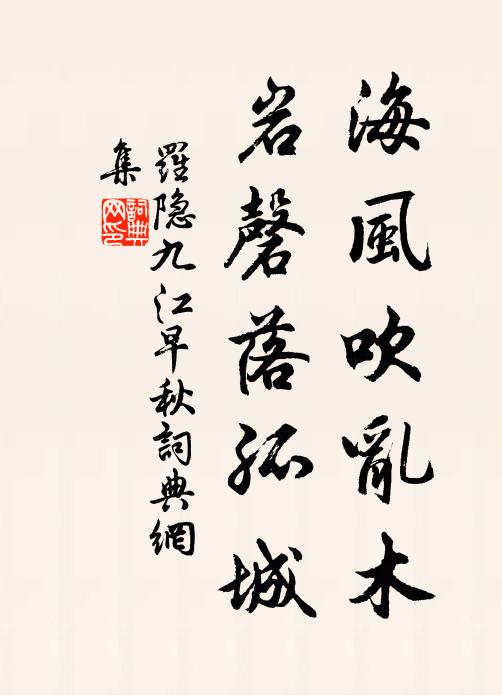 海風吹亂木
岩磬落孤城
羅隐九江早秋詞典網
集
詞典
网印